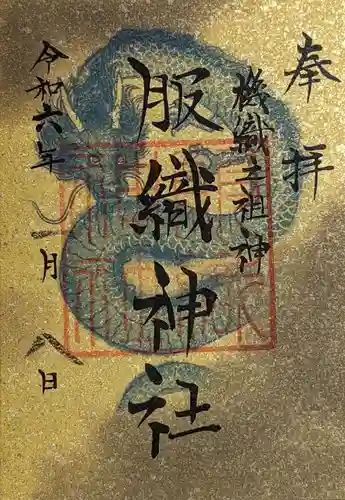 奉拝
機織之祖神
服織神社
令和六年一月八日